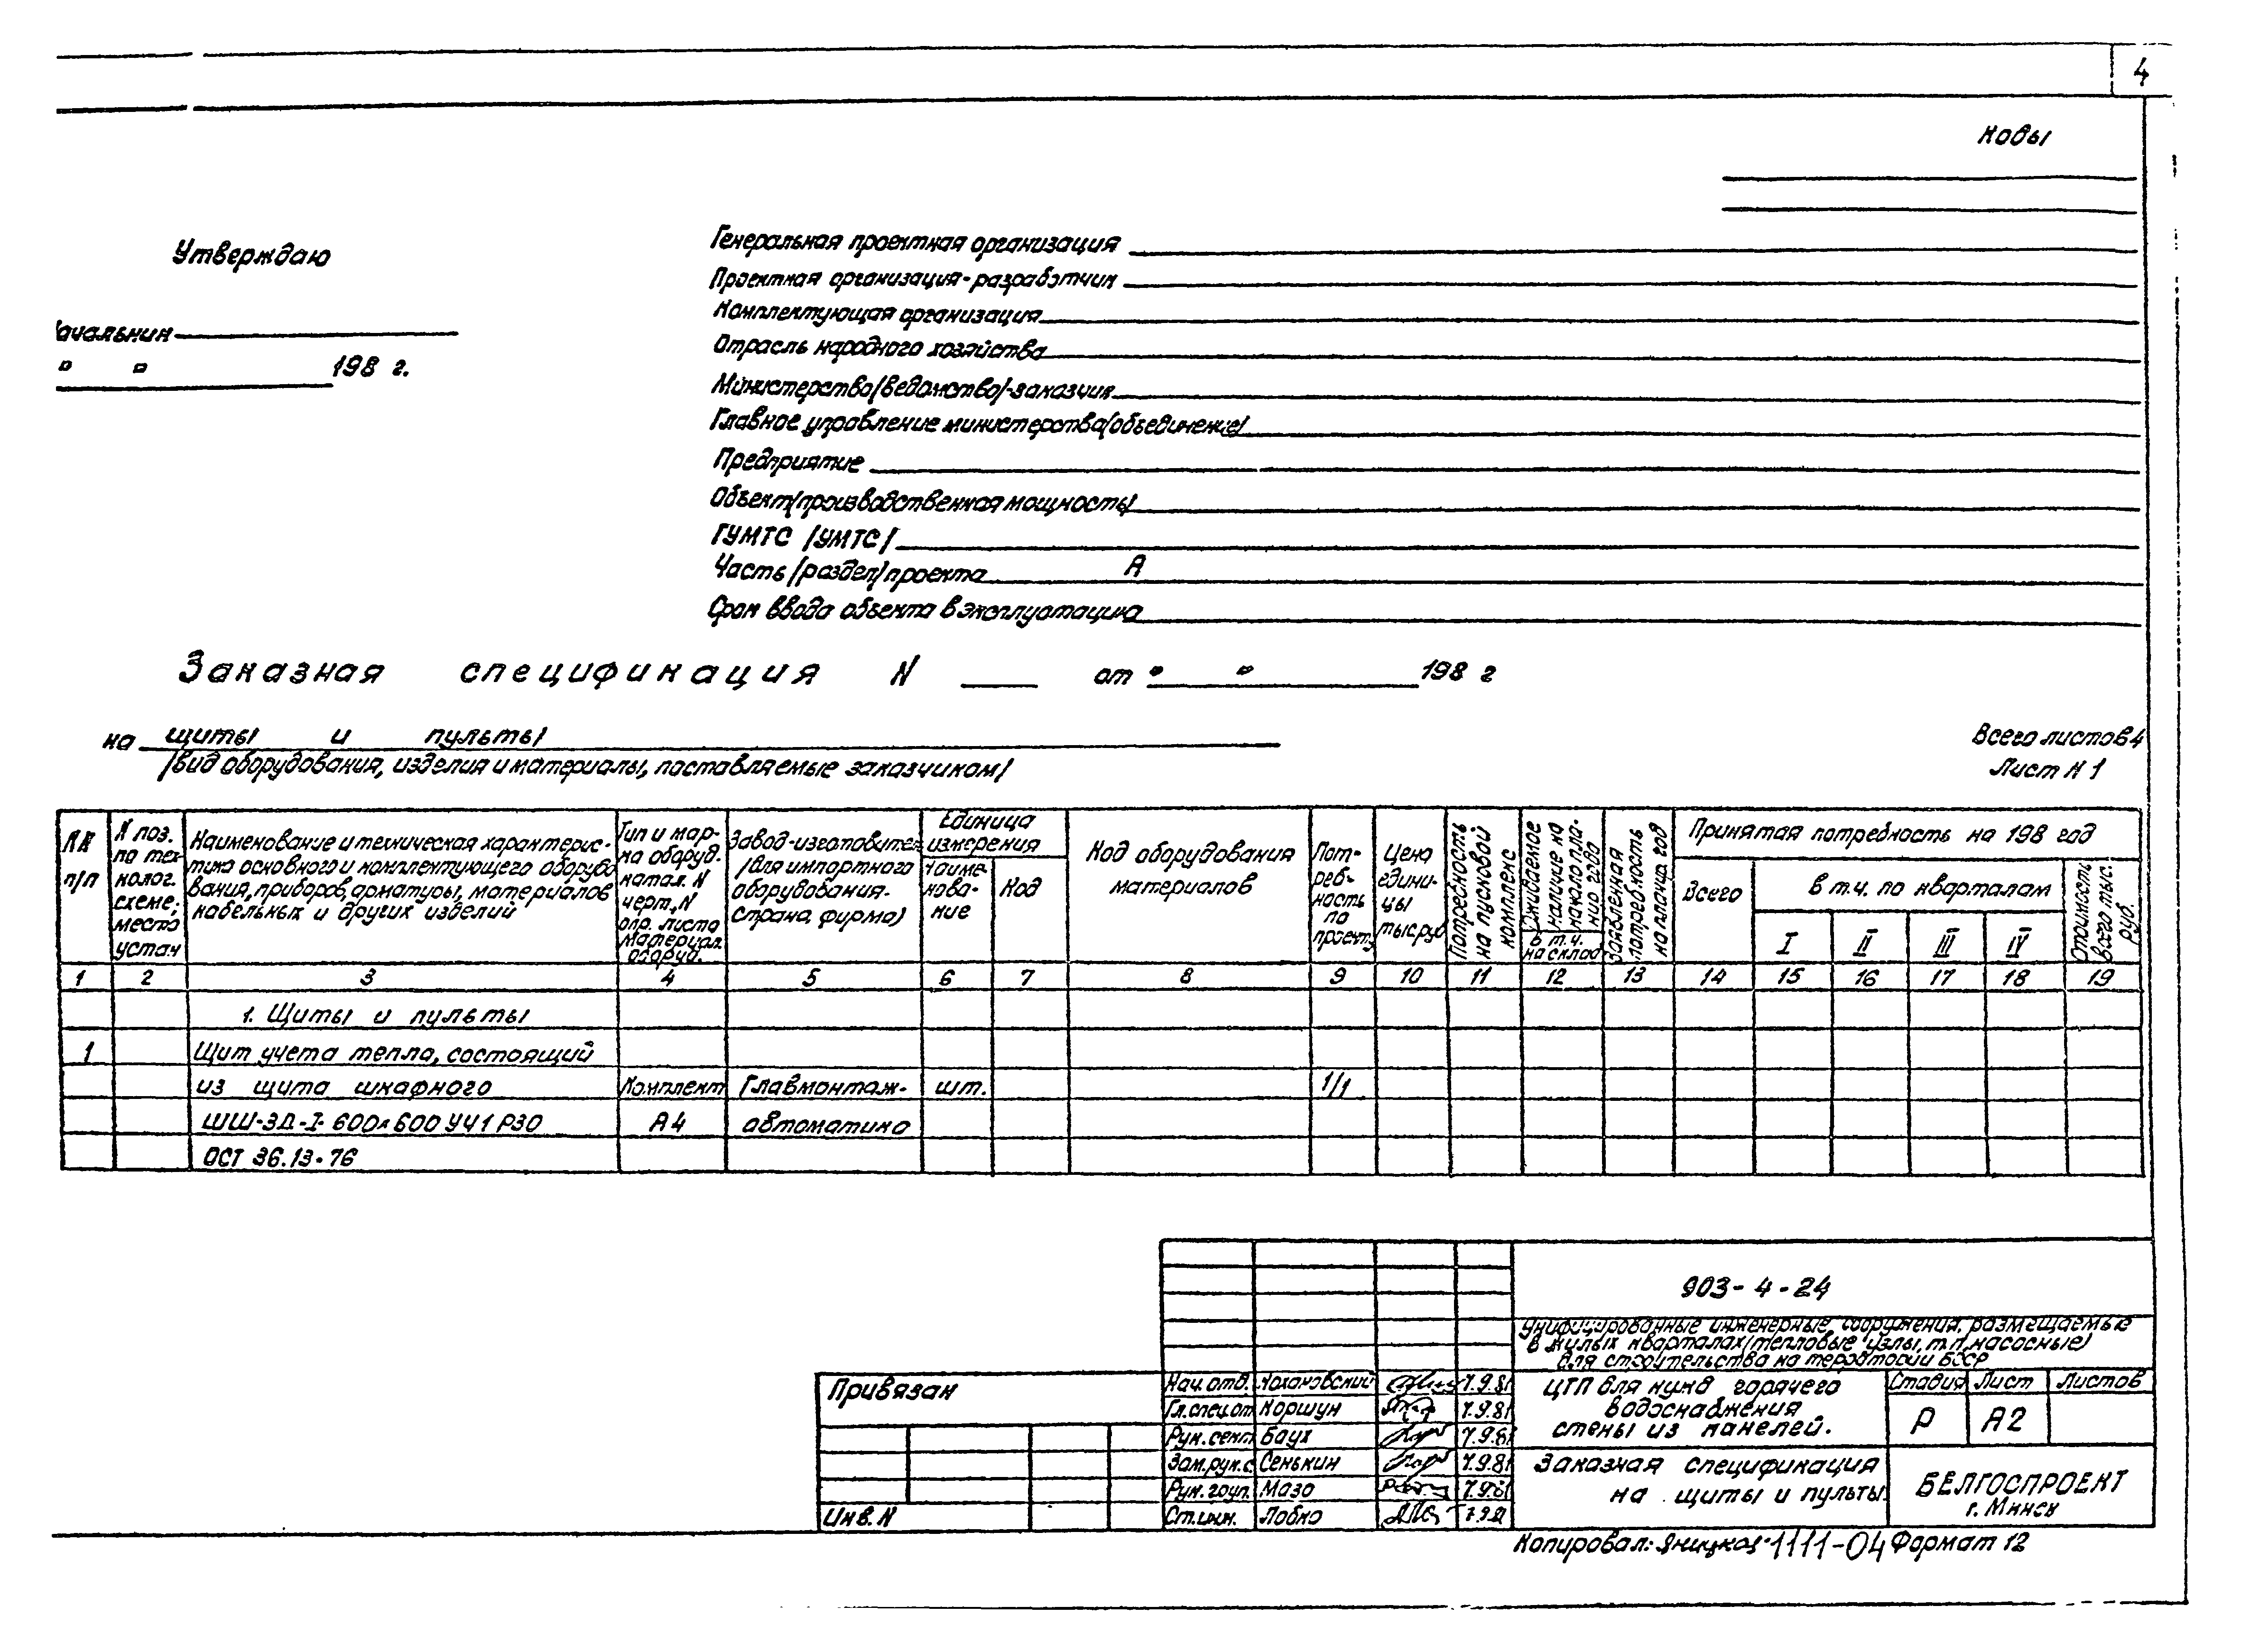 4
Коды
Утверждаю
Генеральная проектная организация
Проектная организация-разработчик
Комплектующая организация
Начальник
Отрасль народного хозяйства
" " 198 г.
Министерство/ведомство/-заказчик
Главное управление министерства/объединение/
Предприятие
Объект/производственная мощность/
ГУМТС /УМТС/
Часть /раздел/ проекта А
Срок ввода объекта в эксплуатацию
Заказная спецификация N от " " 198 г
на щиты и пульты
/вид оборудования, изделия и материалы, поставляемые заказчиком/
Всего листов 4
Лист N 1
NN п/п
N поз. по технолог. схеме; место устан
Наименование и техническая характеристика основного и комплектующего оборудования, приборов, арматуры, материалов кабельных и других изделий
Тип и марка оборуд. катал. N черт., N опр. листа Материал. оборуд.
Завод-изготовитель /для импортного оборудования- страна, фирма)
Единица измерения
Наименование
Код
Код оборудования материалов
Потребность по проекту
Цена единицы тыс.руб
Потребность на пусковой комплекс
Ожидаемое наличие на начало планир. года
в т.ч. на склад
Заявленная потребность на планир. год
Принятая потребность на 198 год
Всего
в т.ч. по кварталам
I II III IV
Стоимость всего тыс. руб.
1 2 3 4 5 6 7 8 9 10 11 12 13 14 15 16 17 18 19
1. Щиты и пульты
1 Щит учета тепла, состоящий
из щита шкафного Комплект Главмонтаж- шт. 1/1
ШШ-ЗД-I-600х600 УЧ1 Р30 А4 автоматика
ОСТ 36.13-76
903-4-24
Унифицированные инженерные сооружения, размещаемые
в жилых кварталах/тепловые узлы, т.п, насосные)
для строительства на территории БССР
Привязан
Нач. отд. 7.9.81
Гл.спец.от Коршун 7.9.81
Рук.сект. Баух 7.9.81
Зам.рук.с. Сенькин 7.9.81
Рук.груп. Мазо 7.9.81
Ст.инж. Лобко 7.9.81
Инв. N
ЦТП для нужд горячего
водоснабжения
стены из панелей.
Стадия Лист Листов
Р А2
Заказная спецификация
на щиты и пульты.
БЕЛГОСПРОЕКТ
г. Минск
Копировал: 1111-04 Формат 12